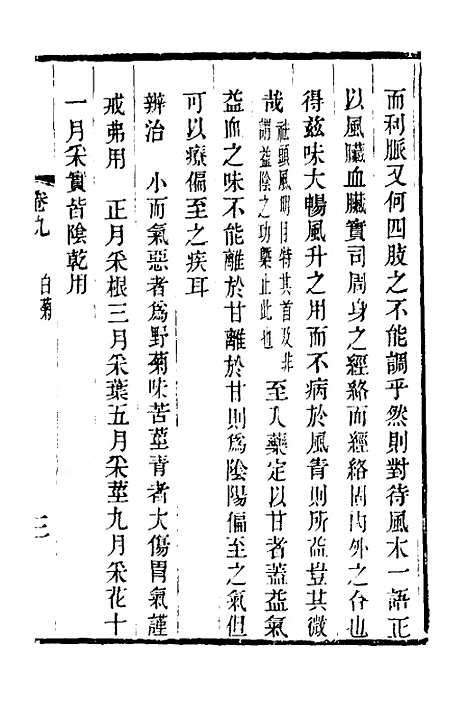 而利脈又何四肢之不能調乎然則對待風木一語正
以風臟血臟實司周身之經絡而經絡固內外之合也
得茲味大暢風升之用而不病於風靑則所益豈其微
哉祛頭風明目特其首及非
謂益陰之功槩止此也至入藥定以甘者蓋益氣
益血之味不能離於甘離於甘則爲陰陽偏至之氣但
可以療偏至之疾耳
辨治　小而氣惡者爲野菊味苦莖靑者大傷胃氣謹
戒弗用　正月采根三月采葉五月采莖九月采花十
一月采實皆陰乾用
卷九　白菊